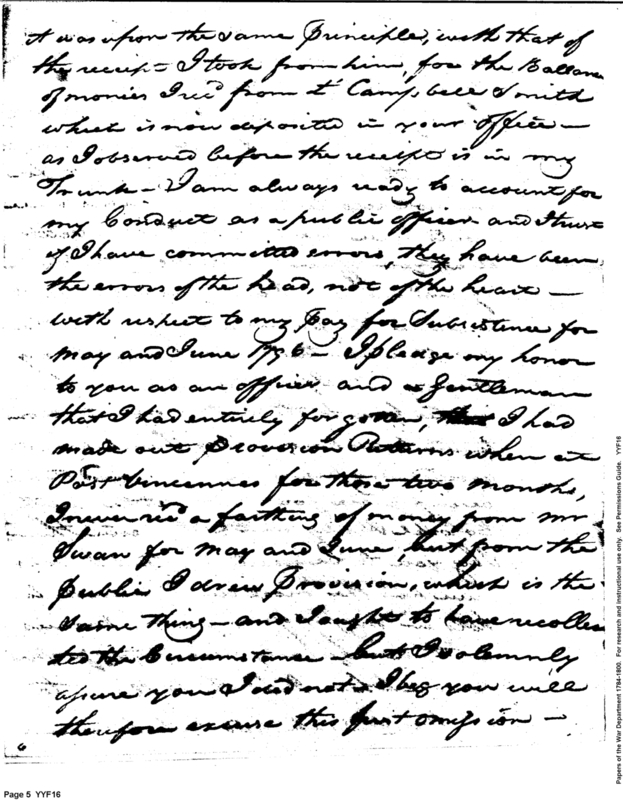 it was upon the same Principle, with that of
the receipt I took from him, for the Ballance
of monies I recd from Lt Campbell Smith
which is now deposited in your office —
as I observed before the receipt is in my
Trunk — I am always ready to account for
my Conduct as a public officer and I trust
if I have committed errors, they have been
the errors of the head, not of the heart —
with respect to my Pay for Subsistence for
May and June 1796 — I pledge my honor
to you as an officer and a Gentleman
that I had entirely forgotten, that I had
made out Provision Returns when at
Post Vincennes for those two months,
I never recd a farthing of money from mr
Swan for May and June, but from the
Public I drew Provision, which is the
same thing — and I ought to have recollec
ted the Circumstance — but I solemnly
assure you I did not — I beg you will
therefore excuse this omission —
6
Page 5 YYF16
Papers of the War Department 1784-1800. For research and instructional use only. See Permissions Guide. YYF16